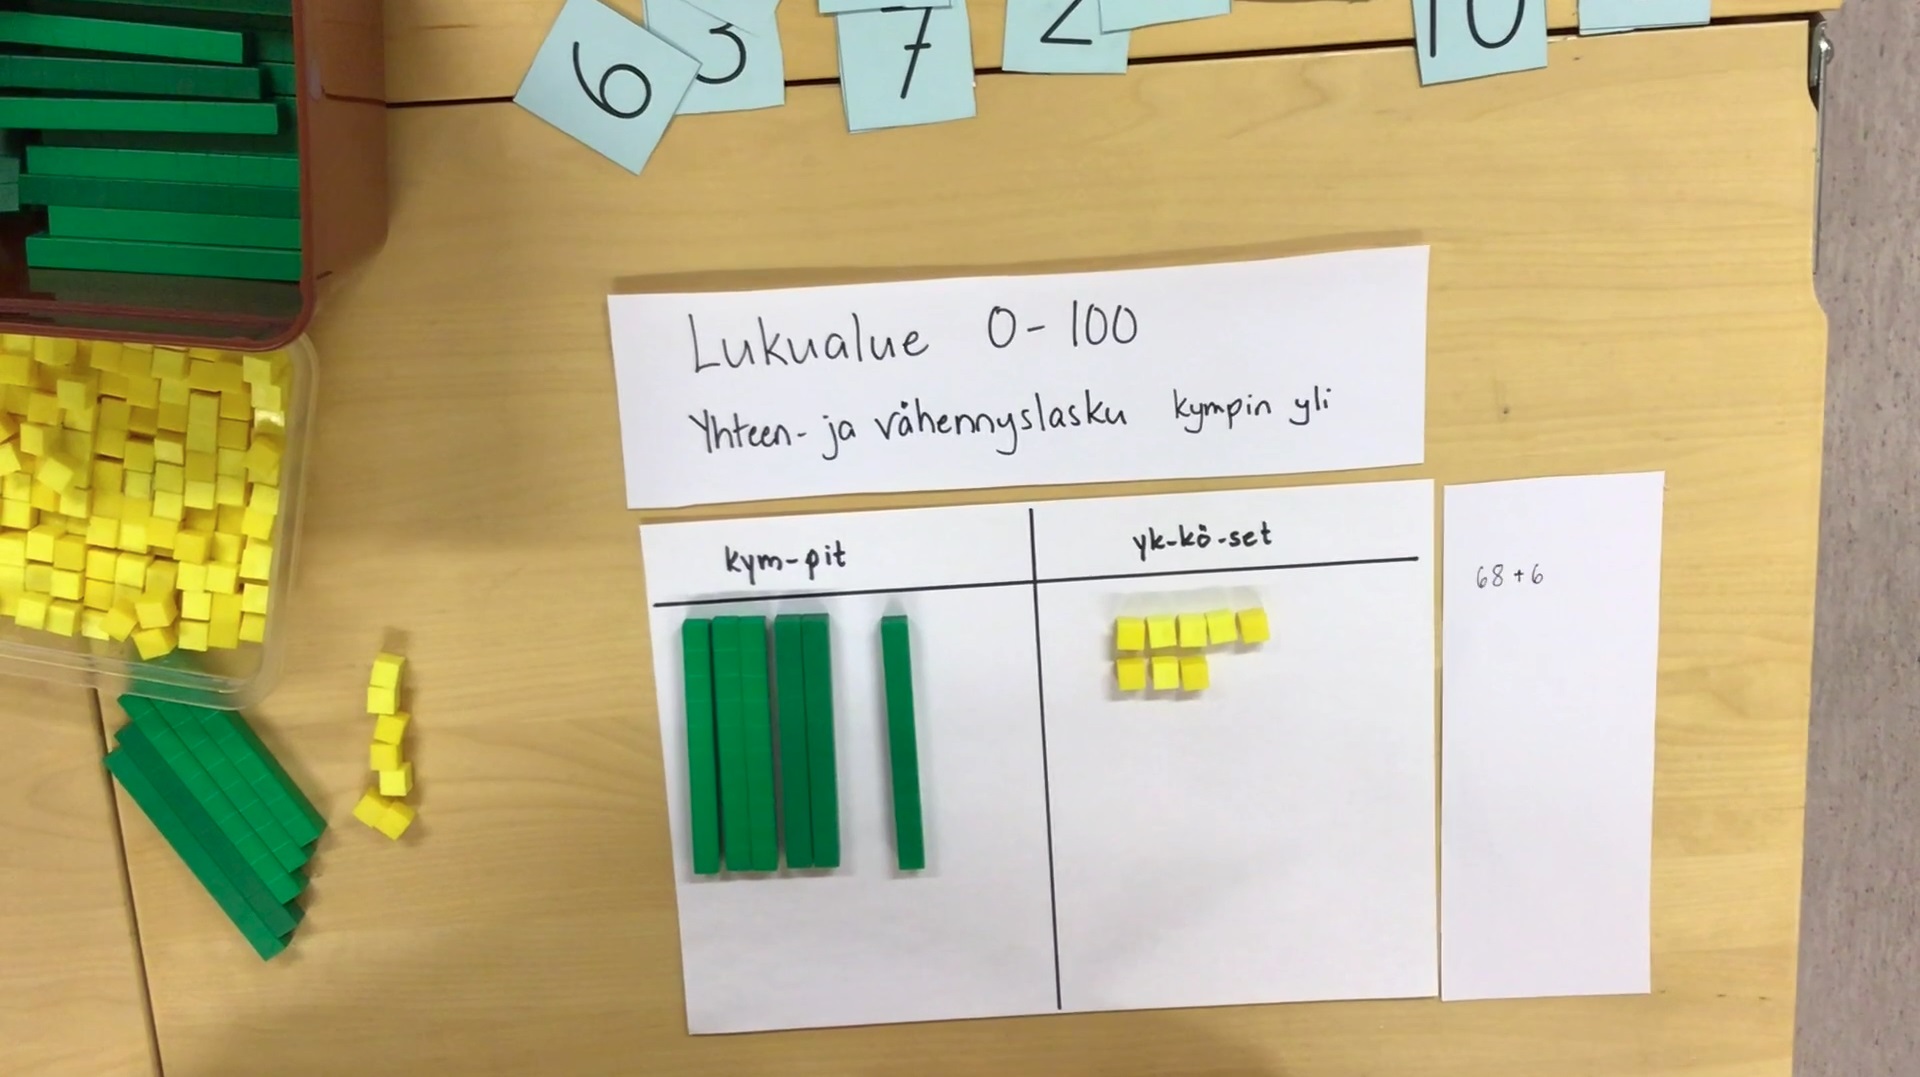 6 3 7 2 10
Lukualue 0-100
Yhteen- ja vähennyslasku kympin yli
kym-pit yk-kö-set
68+6